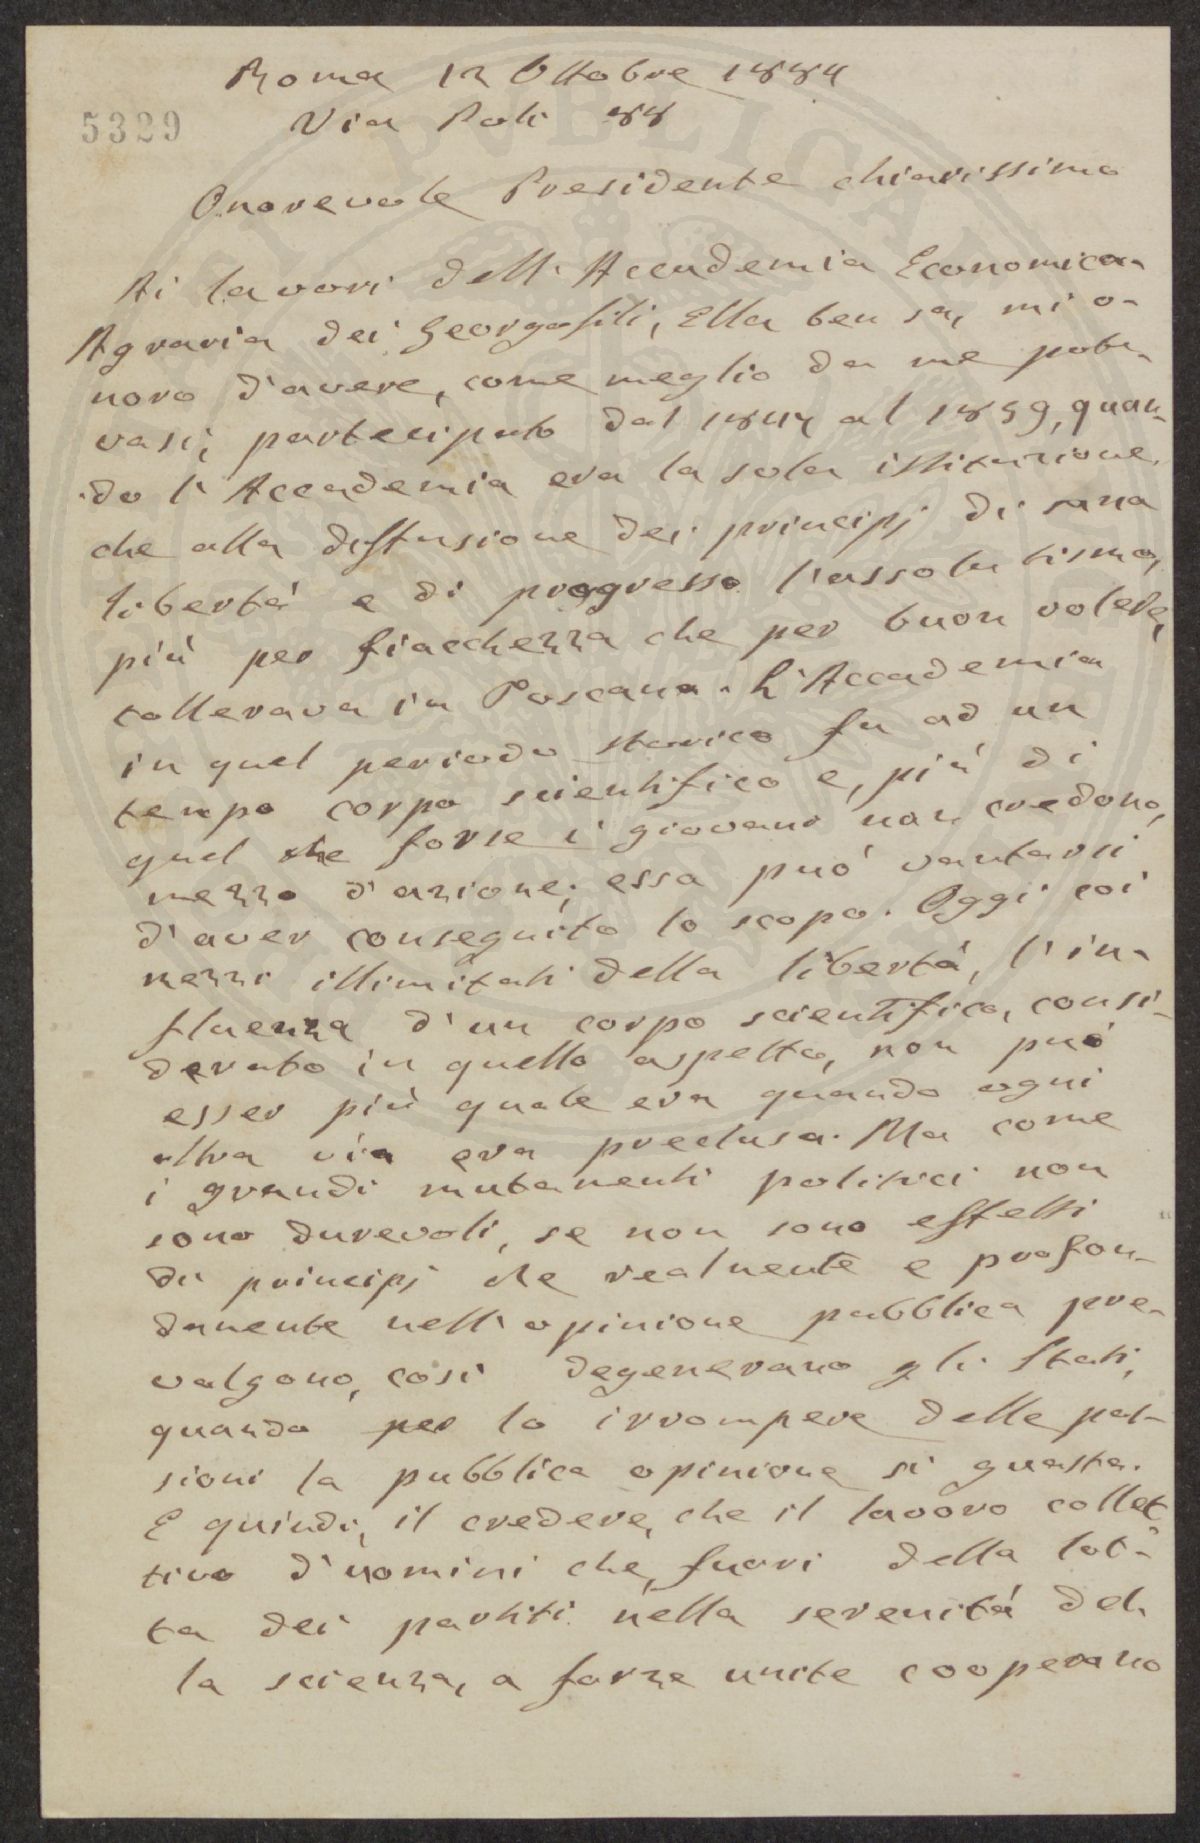 Roma 12 Ottobre 1884
5329
Via Poli 88
Onorevole Presidente chiarissimo
Ai lavori dell'Accademia Economico-
Agraria dei Georgofili, Ella ben sa, mi o-
noro d'avere, come meglio da me pote-
vasi, partecipato dal 1847 al 1859, quan-
do l'Accademia era la sola istituzione
che alla diffusione dei principj di sana
libertà e di progresso l'assolutismo,
più per fiacchezza che per buon volere,
tollerava in Toscana. L'Accademia
in quel periodo storico fu ad un
tempo corpo scientifico e, più di
quel che forse i giovani non credono,
mezzo d'azione; essa può vantarsi
d'aver conseguito lo scopo. Oggi coi
mezzi illimitati della libertà, l'in-
fluenza d'un corpo scientifico, consi-
derato in quello aspetto, non può
esser più quale era quando ogni
altra via era preclusa. Ma come
i grandi mutamenti politici non
sono durevoli, se non sono effetti
di principj che realmente e profon-
damente nell'opinione pubblica pre-
valgono, così degenerano gli Stati,
quando per lo irrompere delle pas-
sioni la pubblica opinione si guasta.
E quindi, il credere, che il lavoro collet-
tivo d'uomini che, fuori della lot-
ta dei partiti nella serenità del-
la scienza, a forze unite cooperano